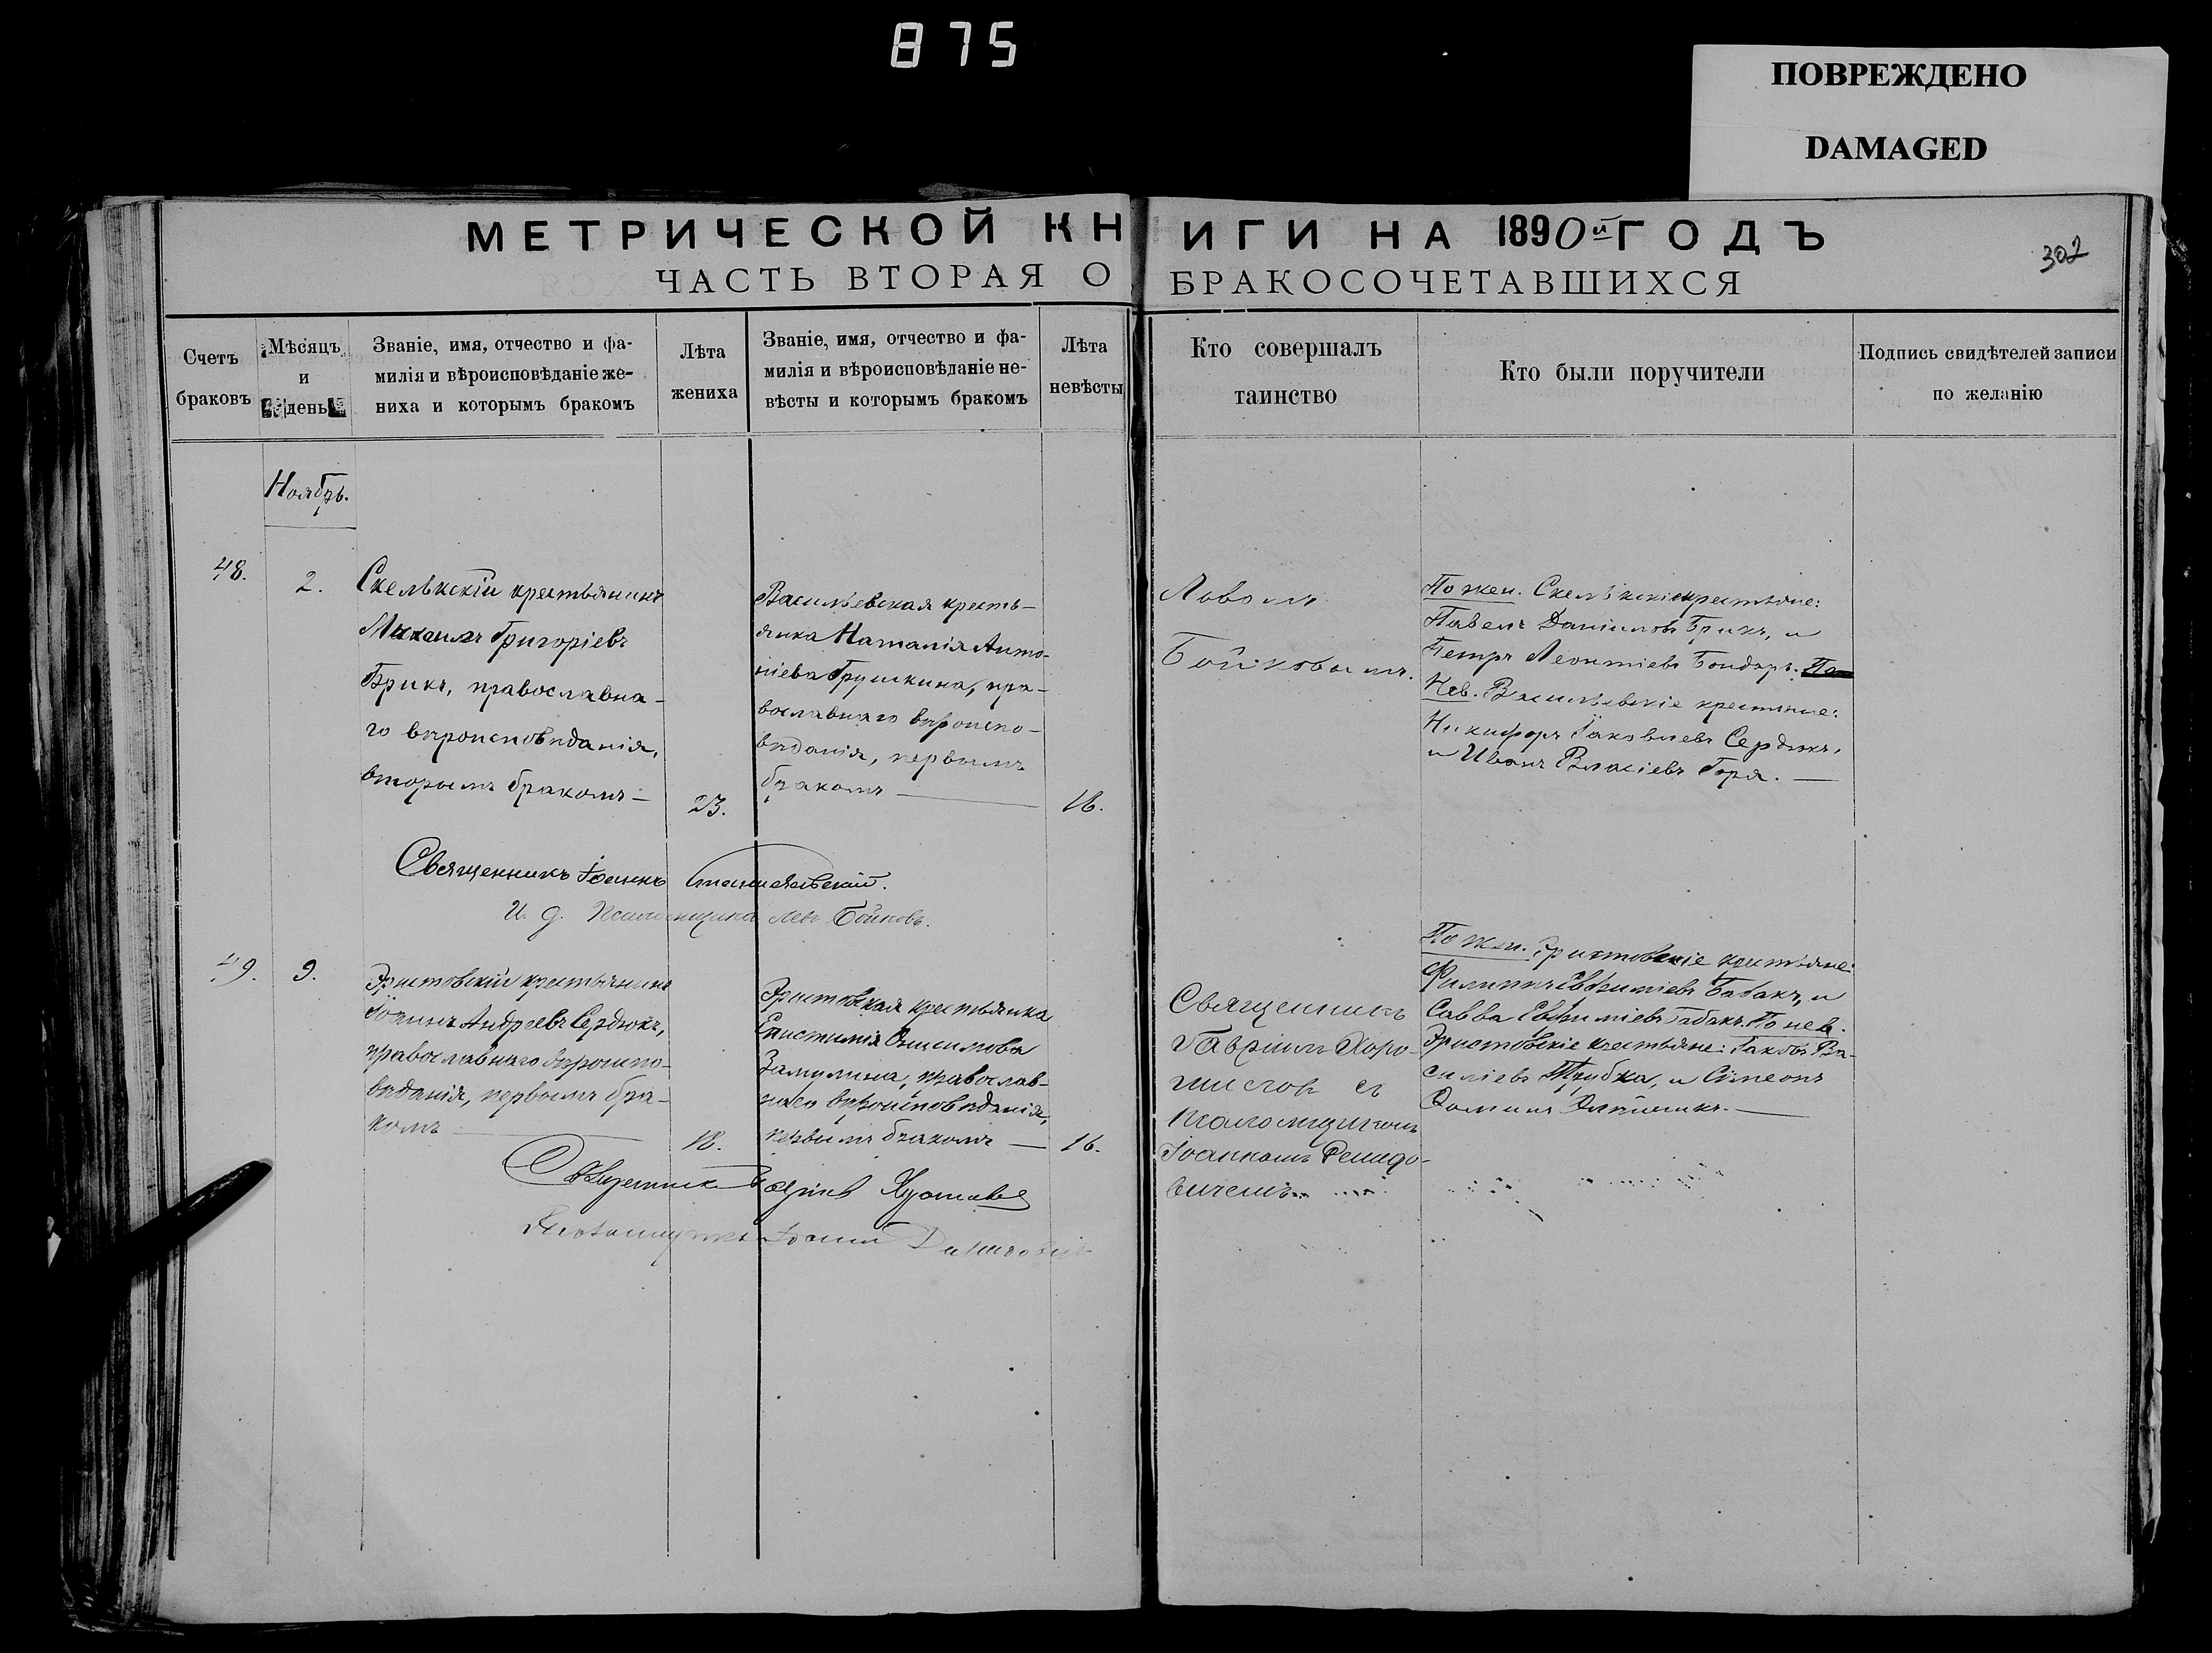 875
ПОВРЕЖДЕНО
DAMAGED
МЕТРИЧЕСКОЙ КНИГИ НА 1890й ГОДЪ
302
ЧАСТЬ ВТОРАЯ О БРАКОСОЧЕТАВШИХСЯ
Счетъ
браковъ
Мѣсяцъ
и
день
Званіе, имя, отчество и фа-
милія и вѣроисповѣданіе же-
ниха и которымъ бракомъ
Лѣта
жениха
Званіе, имя, отчество и фа-
милія и вѣроисповѣданіе не-
вѣсты и которымъ бракомъ
Лѣта
невѣсты
Кто совершалъ
таинство
Кто были поручители
Подпись свидѣтелей записи
по желанію
Ноябрь.
48.
2.
Скельскій крестьянинъ
Михаилъ Григоріевъ
Брикъ, православна-
го вѣроисповѣданія,
вторымъ бракомъ —
23.
Васильевская кресть-
янка Наталія Анто-
ніева Грушкина, пра-
вославнаго вѣроиспо-
вѣданія, первымъ
бракомъ —
16.
Львомъ
Бойковымъ.
По жен. Скельскіе крестьяне:
Павелъ Даніиловъ Брикъ, и
Петръ Леонтіевъ Бондарь. По
Нев. Васильевскіе крестьяне:
Никифоръ Іаковлевъ Сердюкъ,
и Иванъ Власіевъ Горя. —
Священникъ Іоаннъ
И. д. Псаломщика Левъ Бойковъ.
49.
9.
Эристовскій крестьянинъ
Іоаннъ Андреевъ Сердюкъ,
православнаго вѣроиспо-
вѣданія, первымъ бра-
комъ —
18.
Эристовская крестьянка
Епистимія Онисимова
Замулина, православ-
наго вѣроисповѣданія,
первымъ бракомъ —
16.
Священникъ
Гавріилъ
съ
псаломщикомъ
Іоанномъ
По жен. Эристовскіе крестьяне:
Филиппъ Евфиміевъ Бабакъ, и
Савва Евфиміевъ Бабакъ. По нев.
Эристовскіе крестьяне: Іаковъ Ва-
силіевъ Трубка, и Симеонъ
Ѳоминъ Олейникъ. —
Священникъ
Псаломщикъ Іоаннъ